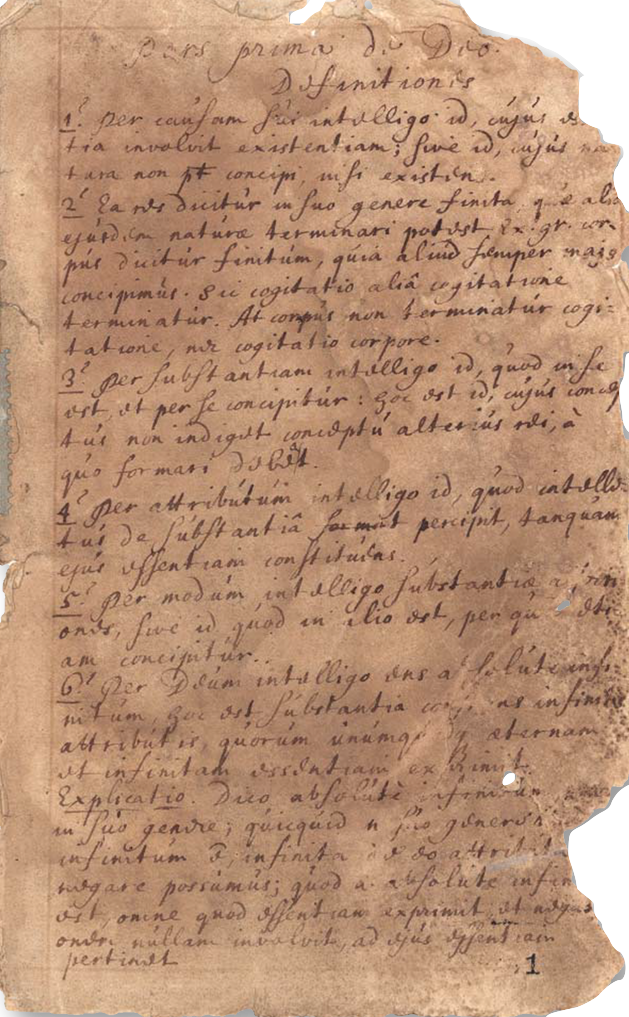 Pars prima de Deo.
Definitiones
1. Per causam sui intelligo id, cujus es
tia involvit existentiam; sive id, cujus na
tura non pt concipi, nisi existen.
2. Ea res dicitur in suo genere finita, quæ alia
ejusdem naturæ terminari potest Ex. gr. cor-
pus dicitur finitum, quia aliud semper majus
concipimus. Sic cogitatio aliâ cogitatione
terminatur. At corpus non terminatur cogi-
tatione, nec cogitatio corpore.
3. Per substantiam intelligo id, quod in se
est, et per se concipitur: hoc est id, cujus concep
tus non indiget conceptu alterius rei, à
quo formari debet.
4. Per attributum intelligo id, quod intellec-
tus de substantiâ percipit, tanquam
ejus essentiam constituens.
5. Per modum intelligo substantiæ a
ones, sive id quod in alio est, per qu eti
am concipitur.
6. Per Deum intelligo ens a solutè infi-
nitum, hoc est substantia ns infinitis
attributis, quorum unumq æternam
et infinitam essentiam exprimit.
Explicatio. Dico absolutè infinitum
in suo genere; quicquid n suo genere
infinitum ē, infinita de eo attributa
negare possumus; quod a absolute infin
est, omne quod essentiam exprimit, et nega
onem nullam involvit, ad ejus essentiam
pertinet
1